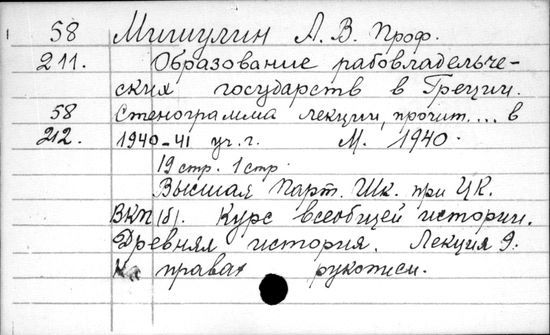 58 Мишулин А. В. Проф.
211. Образование рабовладельче-
ских государств в Греции.
58 Стенограмма лекции, прочит.... в
212. 1940-41 уч. г. М. 1940.
19 стр. 1 стр.
Высшая Парт. Шк. при ЦК.
ВКП(б). Курс всеобщей истории.
Древняя история. Лекция 9.
На правах рукописи.